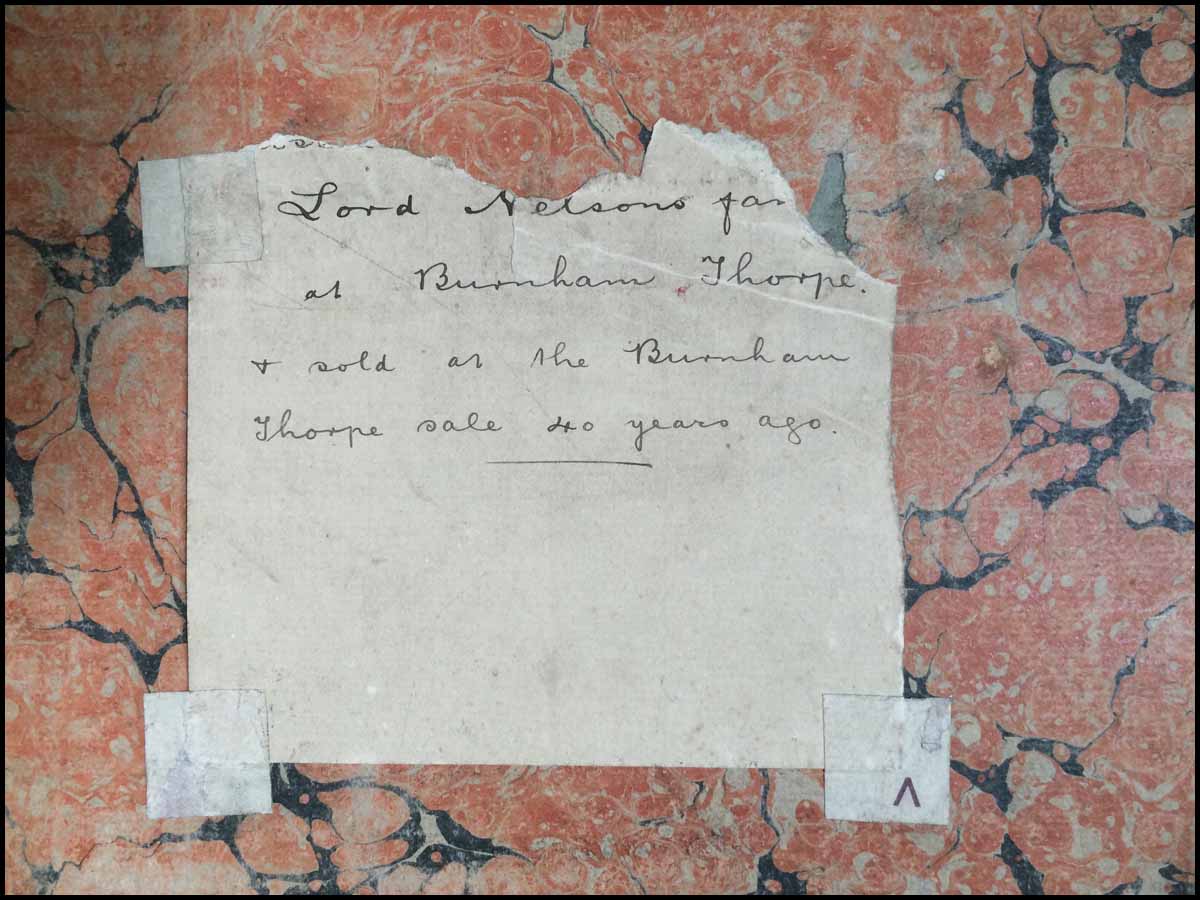 Lord Nelsons fa
at Burnham Thorpe.
& sold at the Burnham
Thorpe sale 40 years ago.